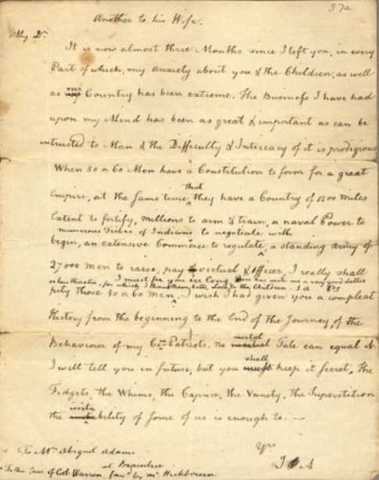 37a
Another to his Wife.
My Dr.
It is now almost three Months since I left you, in every
Part of which, my anxiety about you & the Children, as well
as Country has been extreme. The Business I have had
upon my Mind has been as great & important as can be
intrusted to Man & the Difficulty & Intricacy of it is prodigious
When 50 or 60 Men have a Constitution to form for a great
that
Empire, at the same time they have a Country of 1500 Miles
Extent to fortify, Millions to arm & train, a naval Power to
numerous Tribes of Indians to negotiate with
begin, an extensive Commerce to regulate, a standing Army of
27000 Men to raise, pay victual & officer, I really shall
pity those 50 or 60 Men. I wish I had given you a compleat
History from the beginning to the End of the Journey, of the
Behaviour of my Patriots. No mortal Tale can equal it
shall
I will tell you in future, but you keep it secret, The
Fidgets, the Whims, the Caprice, the Vanity, the Superstition
irrita
the bility of some of us is enough to. —
Yrs
J A
To Mrs Abigail Adams
at Braintree
To the Care of Col Warren, favd by Mr Hichbourne